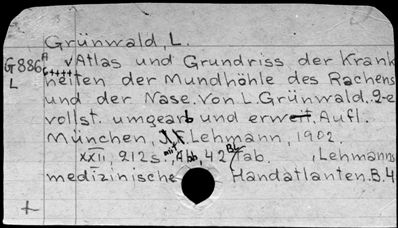 Grünwald, L.
G886 A v Atlas und Grundriss der Krank
L heiten der Mundhöhle des Rachens
und der Nase. Von L. Grünwald. 2-e
vollst. umgearb und erweit. Aufl.
München, J.F. Lehmann, 1902.
XXII, 212 s., mit Abb, 42 Bl. Tab. , Lehmanns
medizinische Handatlanten. B. 4
+